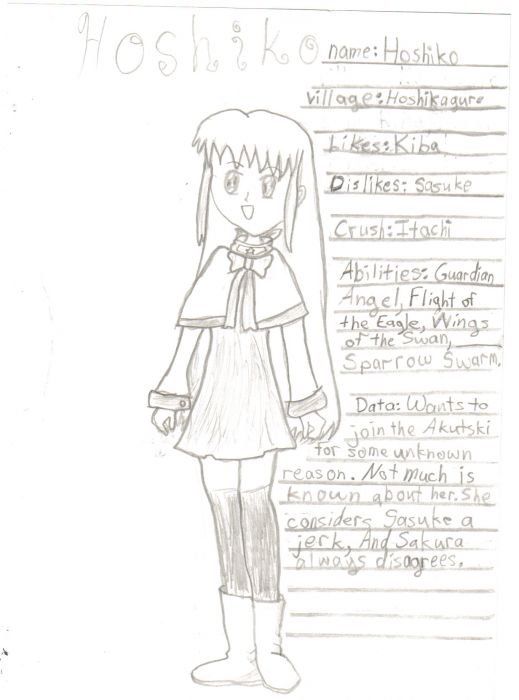 Hoshiko
name: Hoshiko
village: Hoshikagure
Likes: Kiba
Dislikes: Sasuke
Crush: Itachi
Abilities: Guardian
Angel, Flight of
the Eagle, Wings
of the Swan,
Sparrow Swarm.
Data: Wants to
join the Akutski
for some unknown
reason. Not much is
known about her. She
considers Sasuke a
jerk, And Sakura
always disagrees.